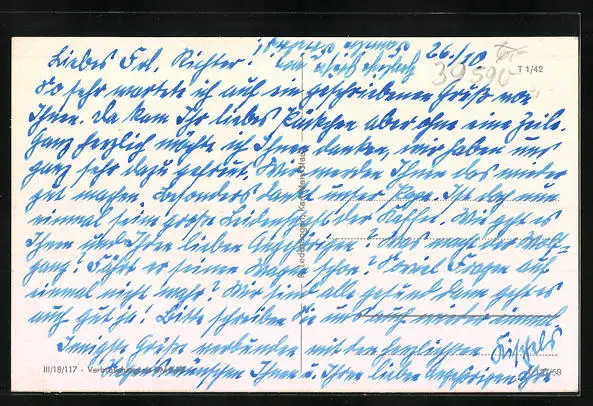 Liebes Frl. Richter! 26./10
T 1/42
39590
So sehr wartete ich auf ein geschriebenen Gruß von
Ihnen. Da kam Ihr liebes Päckchen aber ohne eine Zeile.
Ganz herzlich möchte ich Ihnen danken, wir haben uns
ganz sehr dazu gefreut. Wir werden Ihnen das wieder
gut machen. Besonders dankt unser Papa. Ist doch nun
einmal seine große Leidenschaft der. Wie geht es
Ihnen und Ihren lieben Angehörigen? Was macht Wolf-
gang? Fährt er seinen Wagen schon? Soviel Fragen auf
einmal nicht wahr? Wir sind alle gesund dann geht es
auch gut ja! Bitte schreiben Sie uns auch wieder einmal
Innigste Grüße verbunden mit den herzlichsten
III/18/117
wünschen Ihnen u. Ihren lieben Angehörigen Ihre